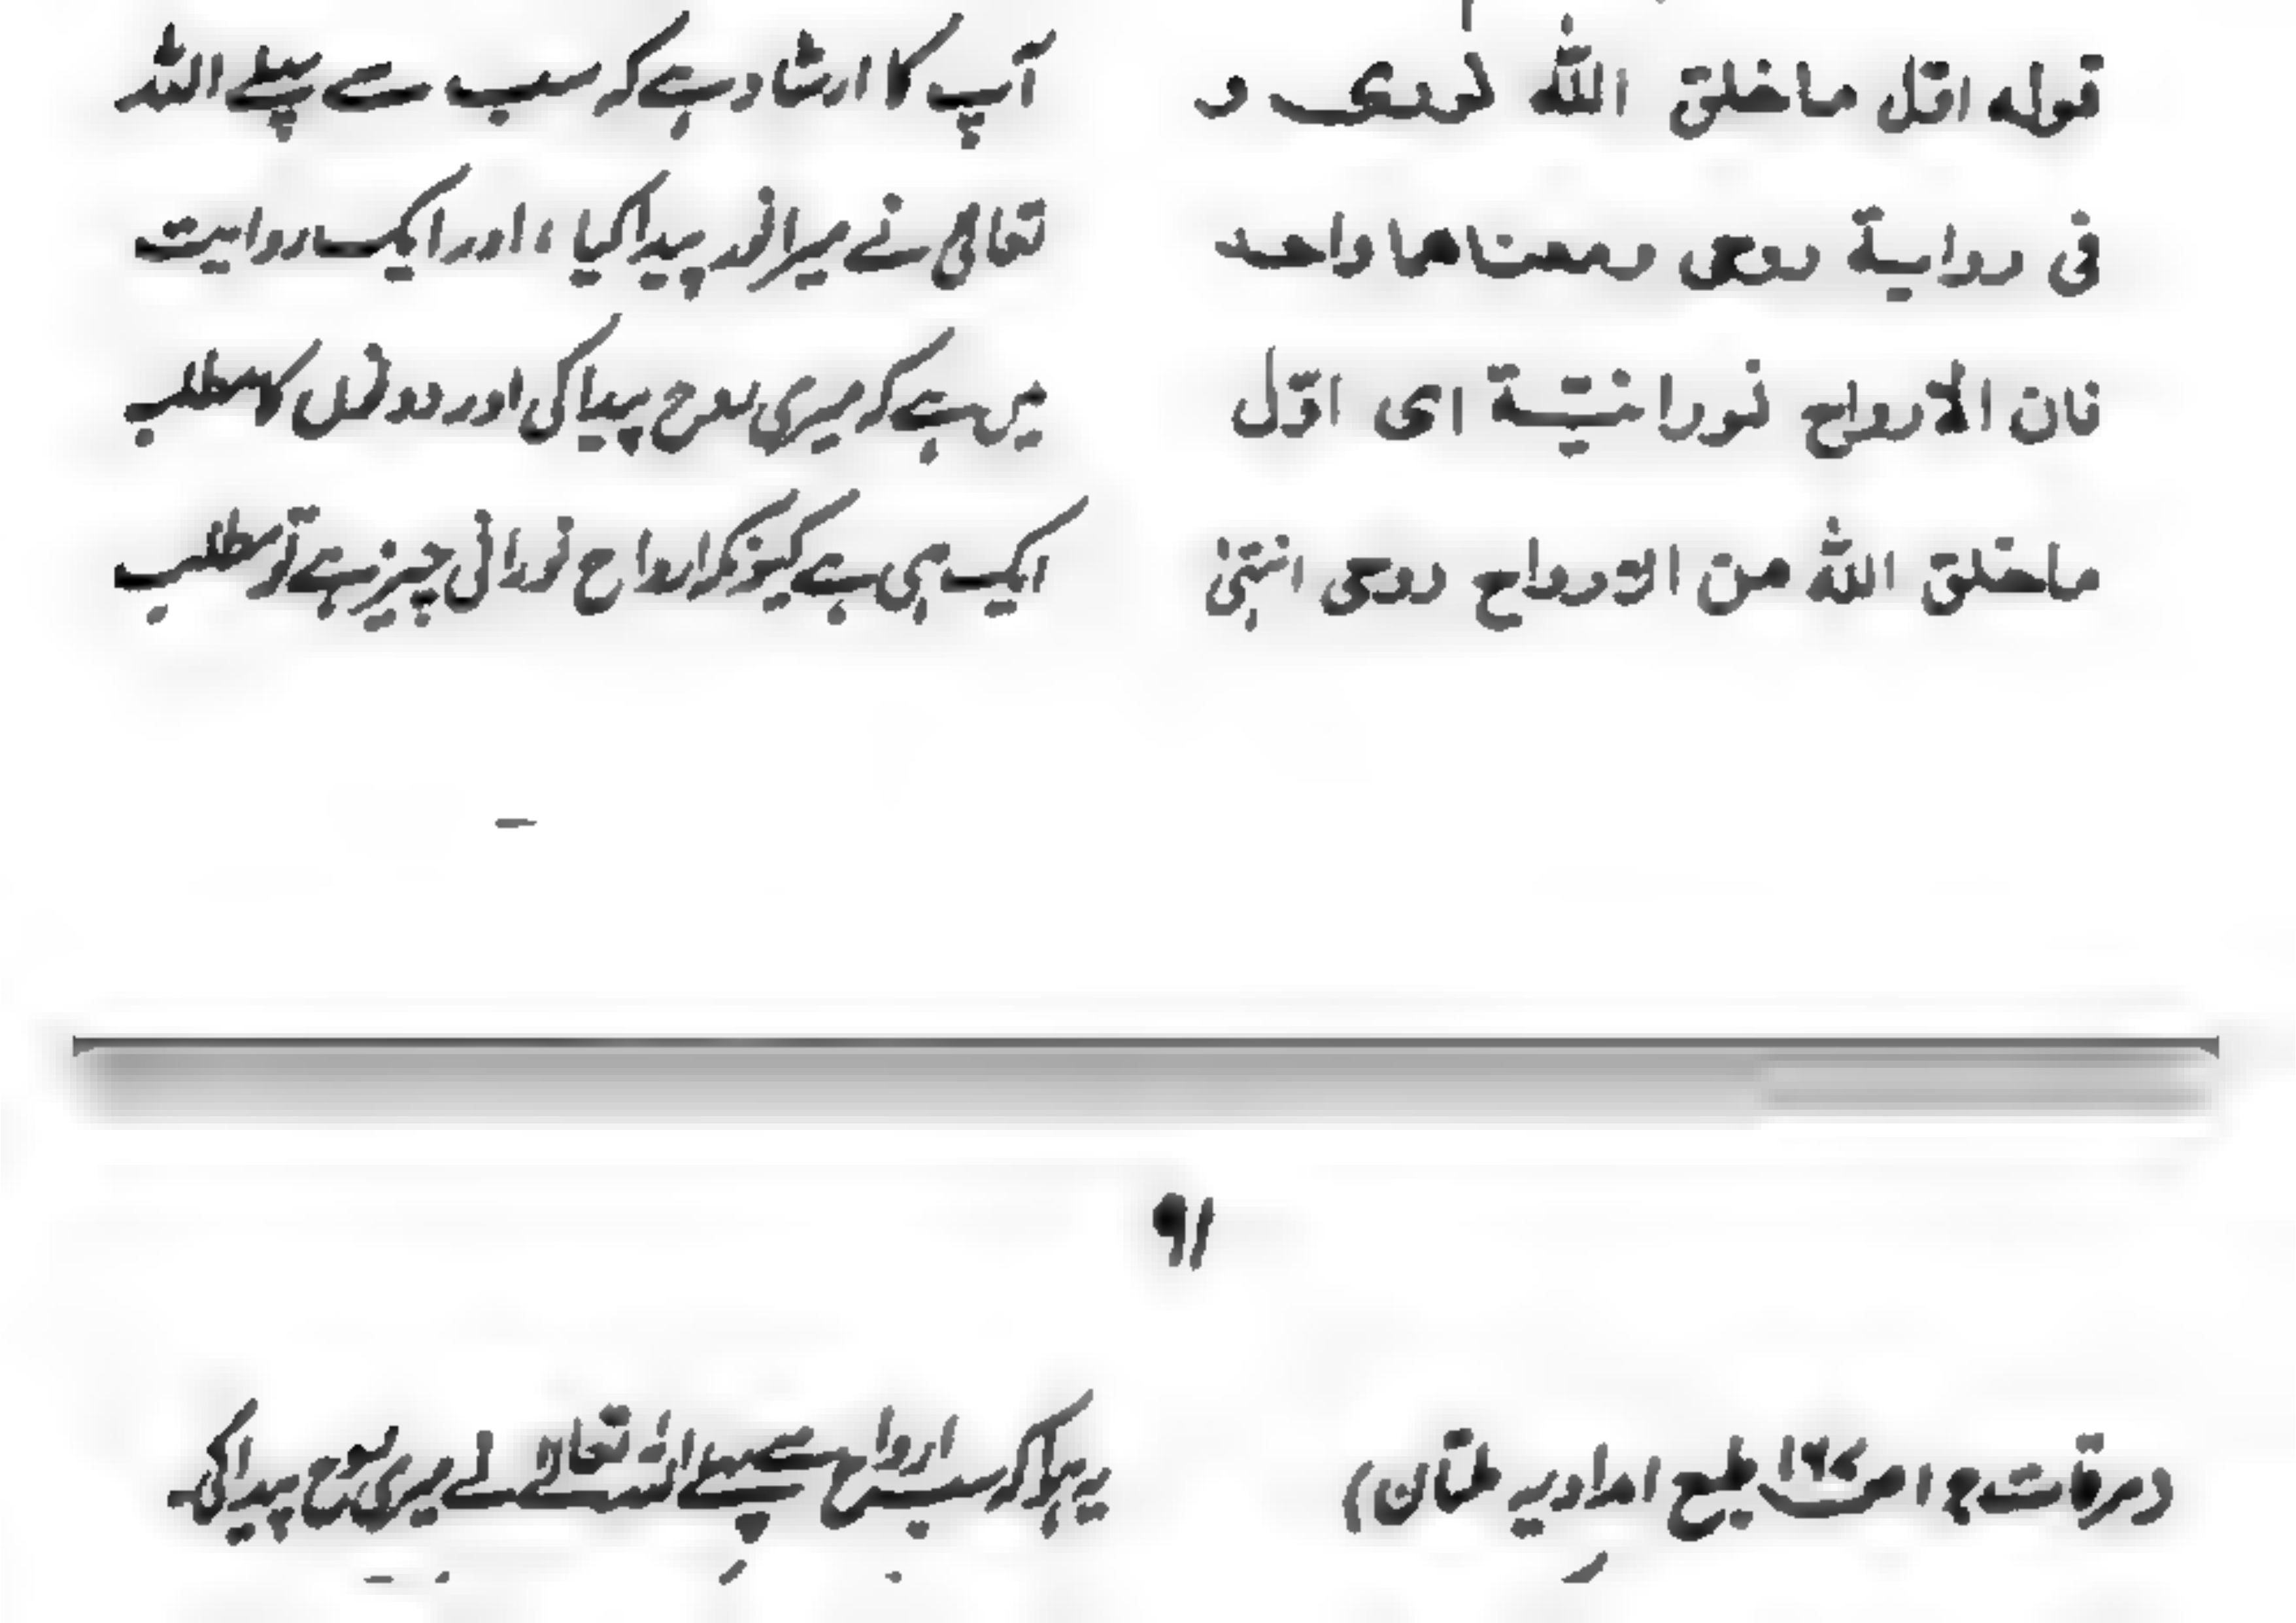 قوله اوّل ماخلق الله نوری و
فی روایة روحی ومعناهما واحد
فان الارواح نورانیّة ای اوّل
ماخلق الله من الارواح روحی انتہیٰ
آپ کا ارشاد ہے کہ سب سے پہلے اللہ
تعالیٰ نے میرا نور پیدا کیا ، اور ایک روایت
میں ہے کہ میری روح پیدا کی اور دونوں کا مطلب
ایک ہی ہے کیونکہ ارواح نورانی چیز ہے تو مطلب
۹۱
(مرقات ج ۱ ص طبع امدادیہ ملتان)
یہ ہوا کہ سب ارواح سے پہلے اللہ تعالےٰ نے میری روح پیدا کی